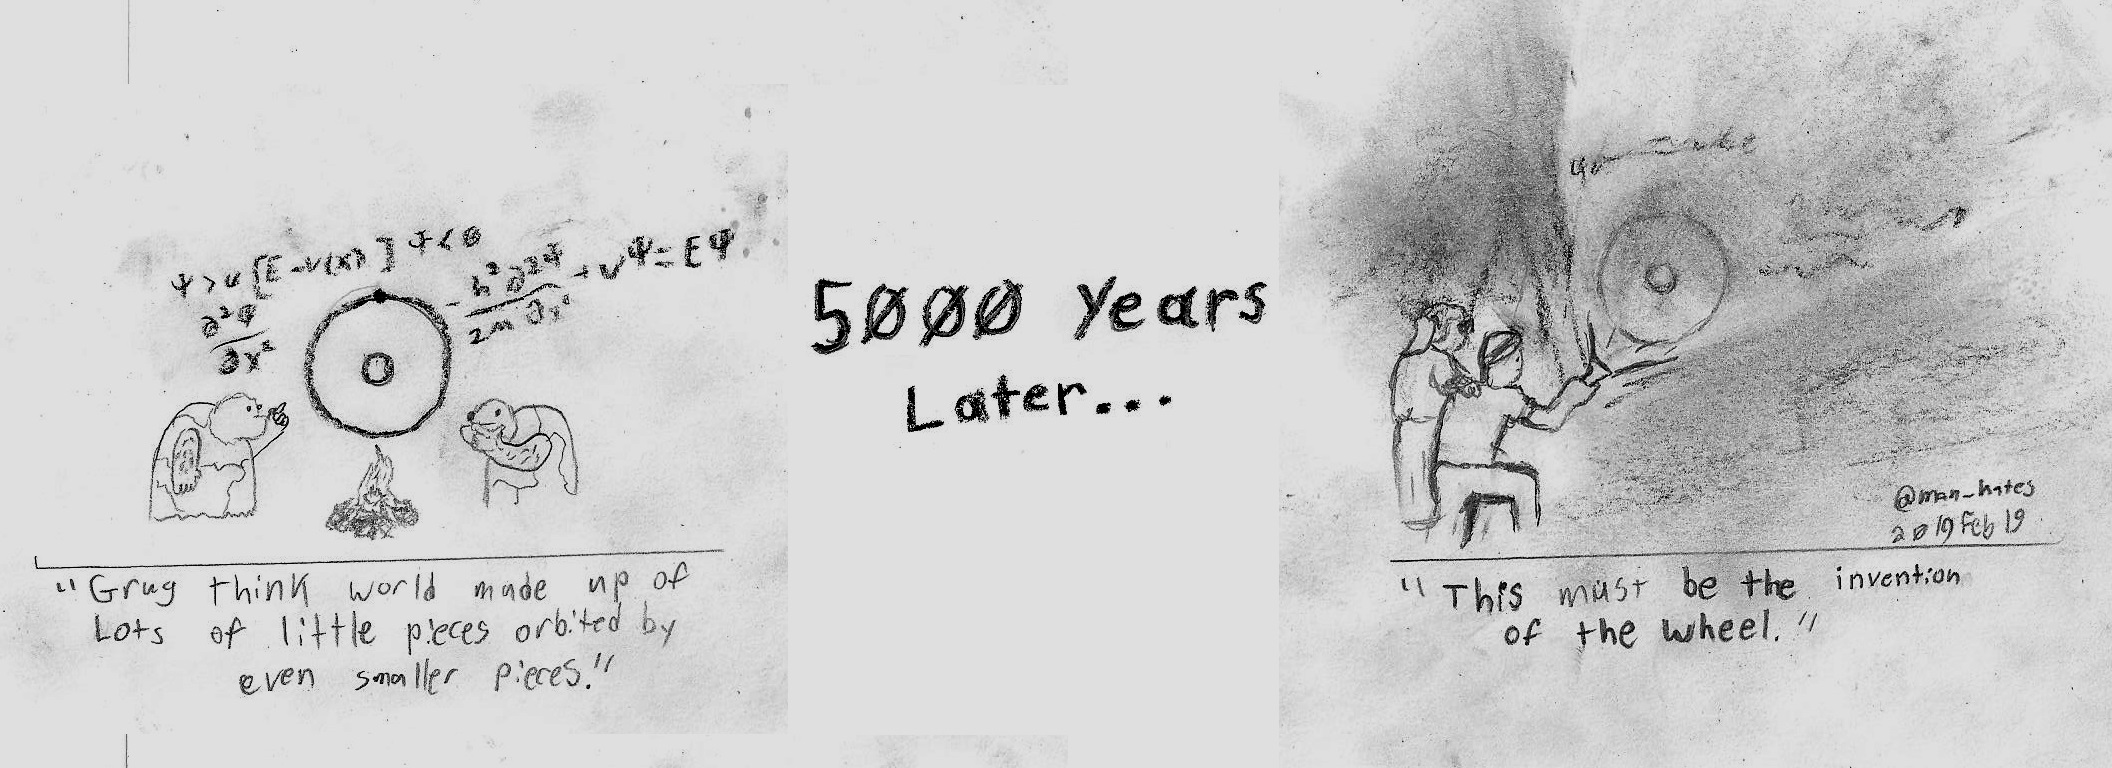 Ψ > v [E - V(x)] Ψ < 0
∂²Ψ
∂x²
- h² ∂²Ψ + VΨ = EΨ
2m ∂x²
"Grug think world made up of
Lots of little pieces orbited by
even smaller pieces."
5000 years
Later...
@man_hates
2019 Feb 19
"This must be the invention
of the wheel."